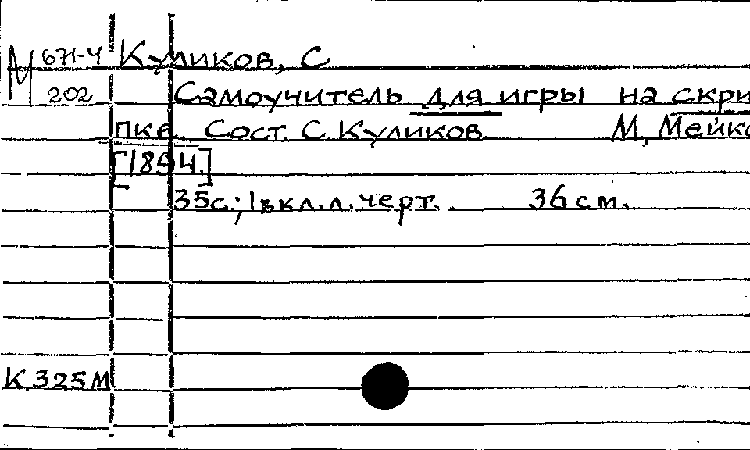 М 671-4 Куликов, С
202 Самоучитель для игры на скри
пке. Сост. С. Куликов М, Мейко
[1894.]
35с.; 1 вкл.л.черт. 36 см.
К 325М